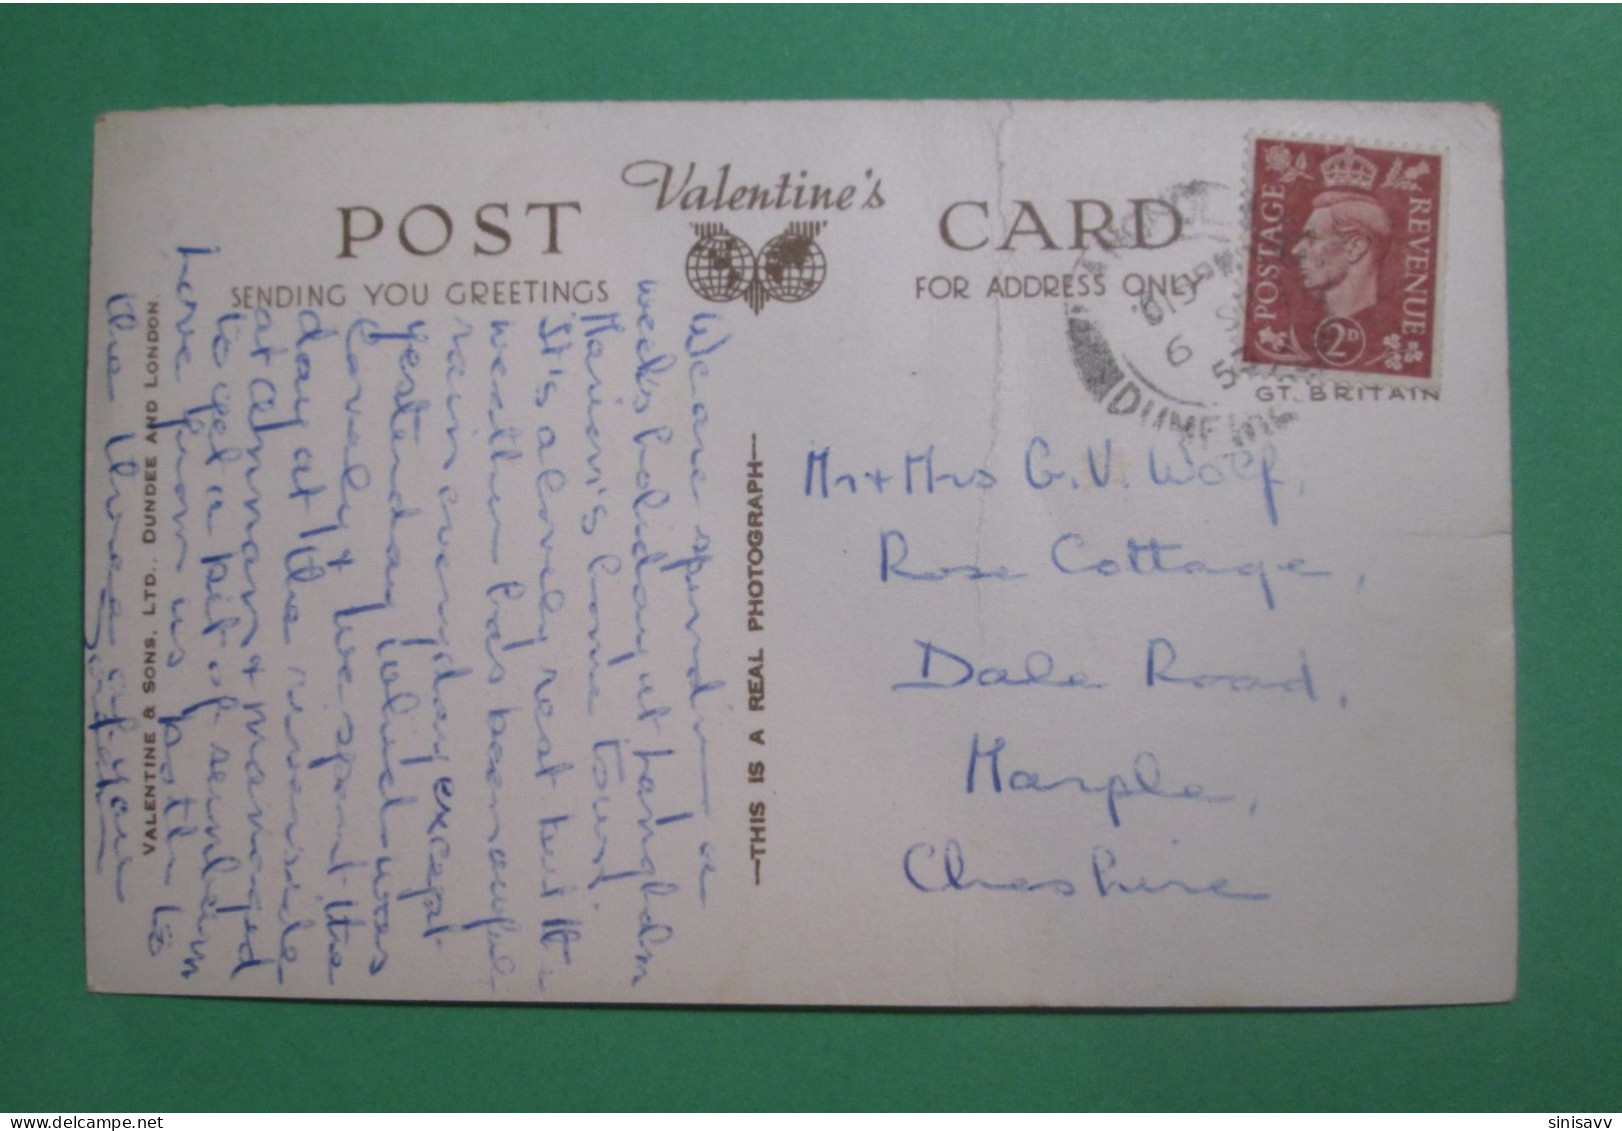 POST
Valentine's
CARD
SENDING YOU GREETINGS
FOR ADDRESS ONLY
POSTAGE
REVENUE
2D
GT. BRITAIN
6
DUMF
We are spending a
week's holiday at Langholm
Marion's home town.
It's a lovely rest but the
weather has been awful,
rain every day except
yesterday which was
lovely & we spent the
day at the riverside
at Annan & managed
to get a bit of sunburn
Love from us both to
the three of you
Gordon
—THIS IS A REAL PHOTOGRAPH—
VALENTINE & SONS, LTD., DUNDEE AND LONDON.
Mr + Mrs G. V. Wolf,
Rose Cottage,
Dale Road,
Marple,
Cheshire
sinisavv